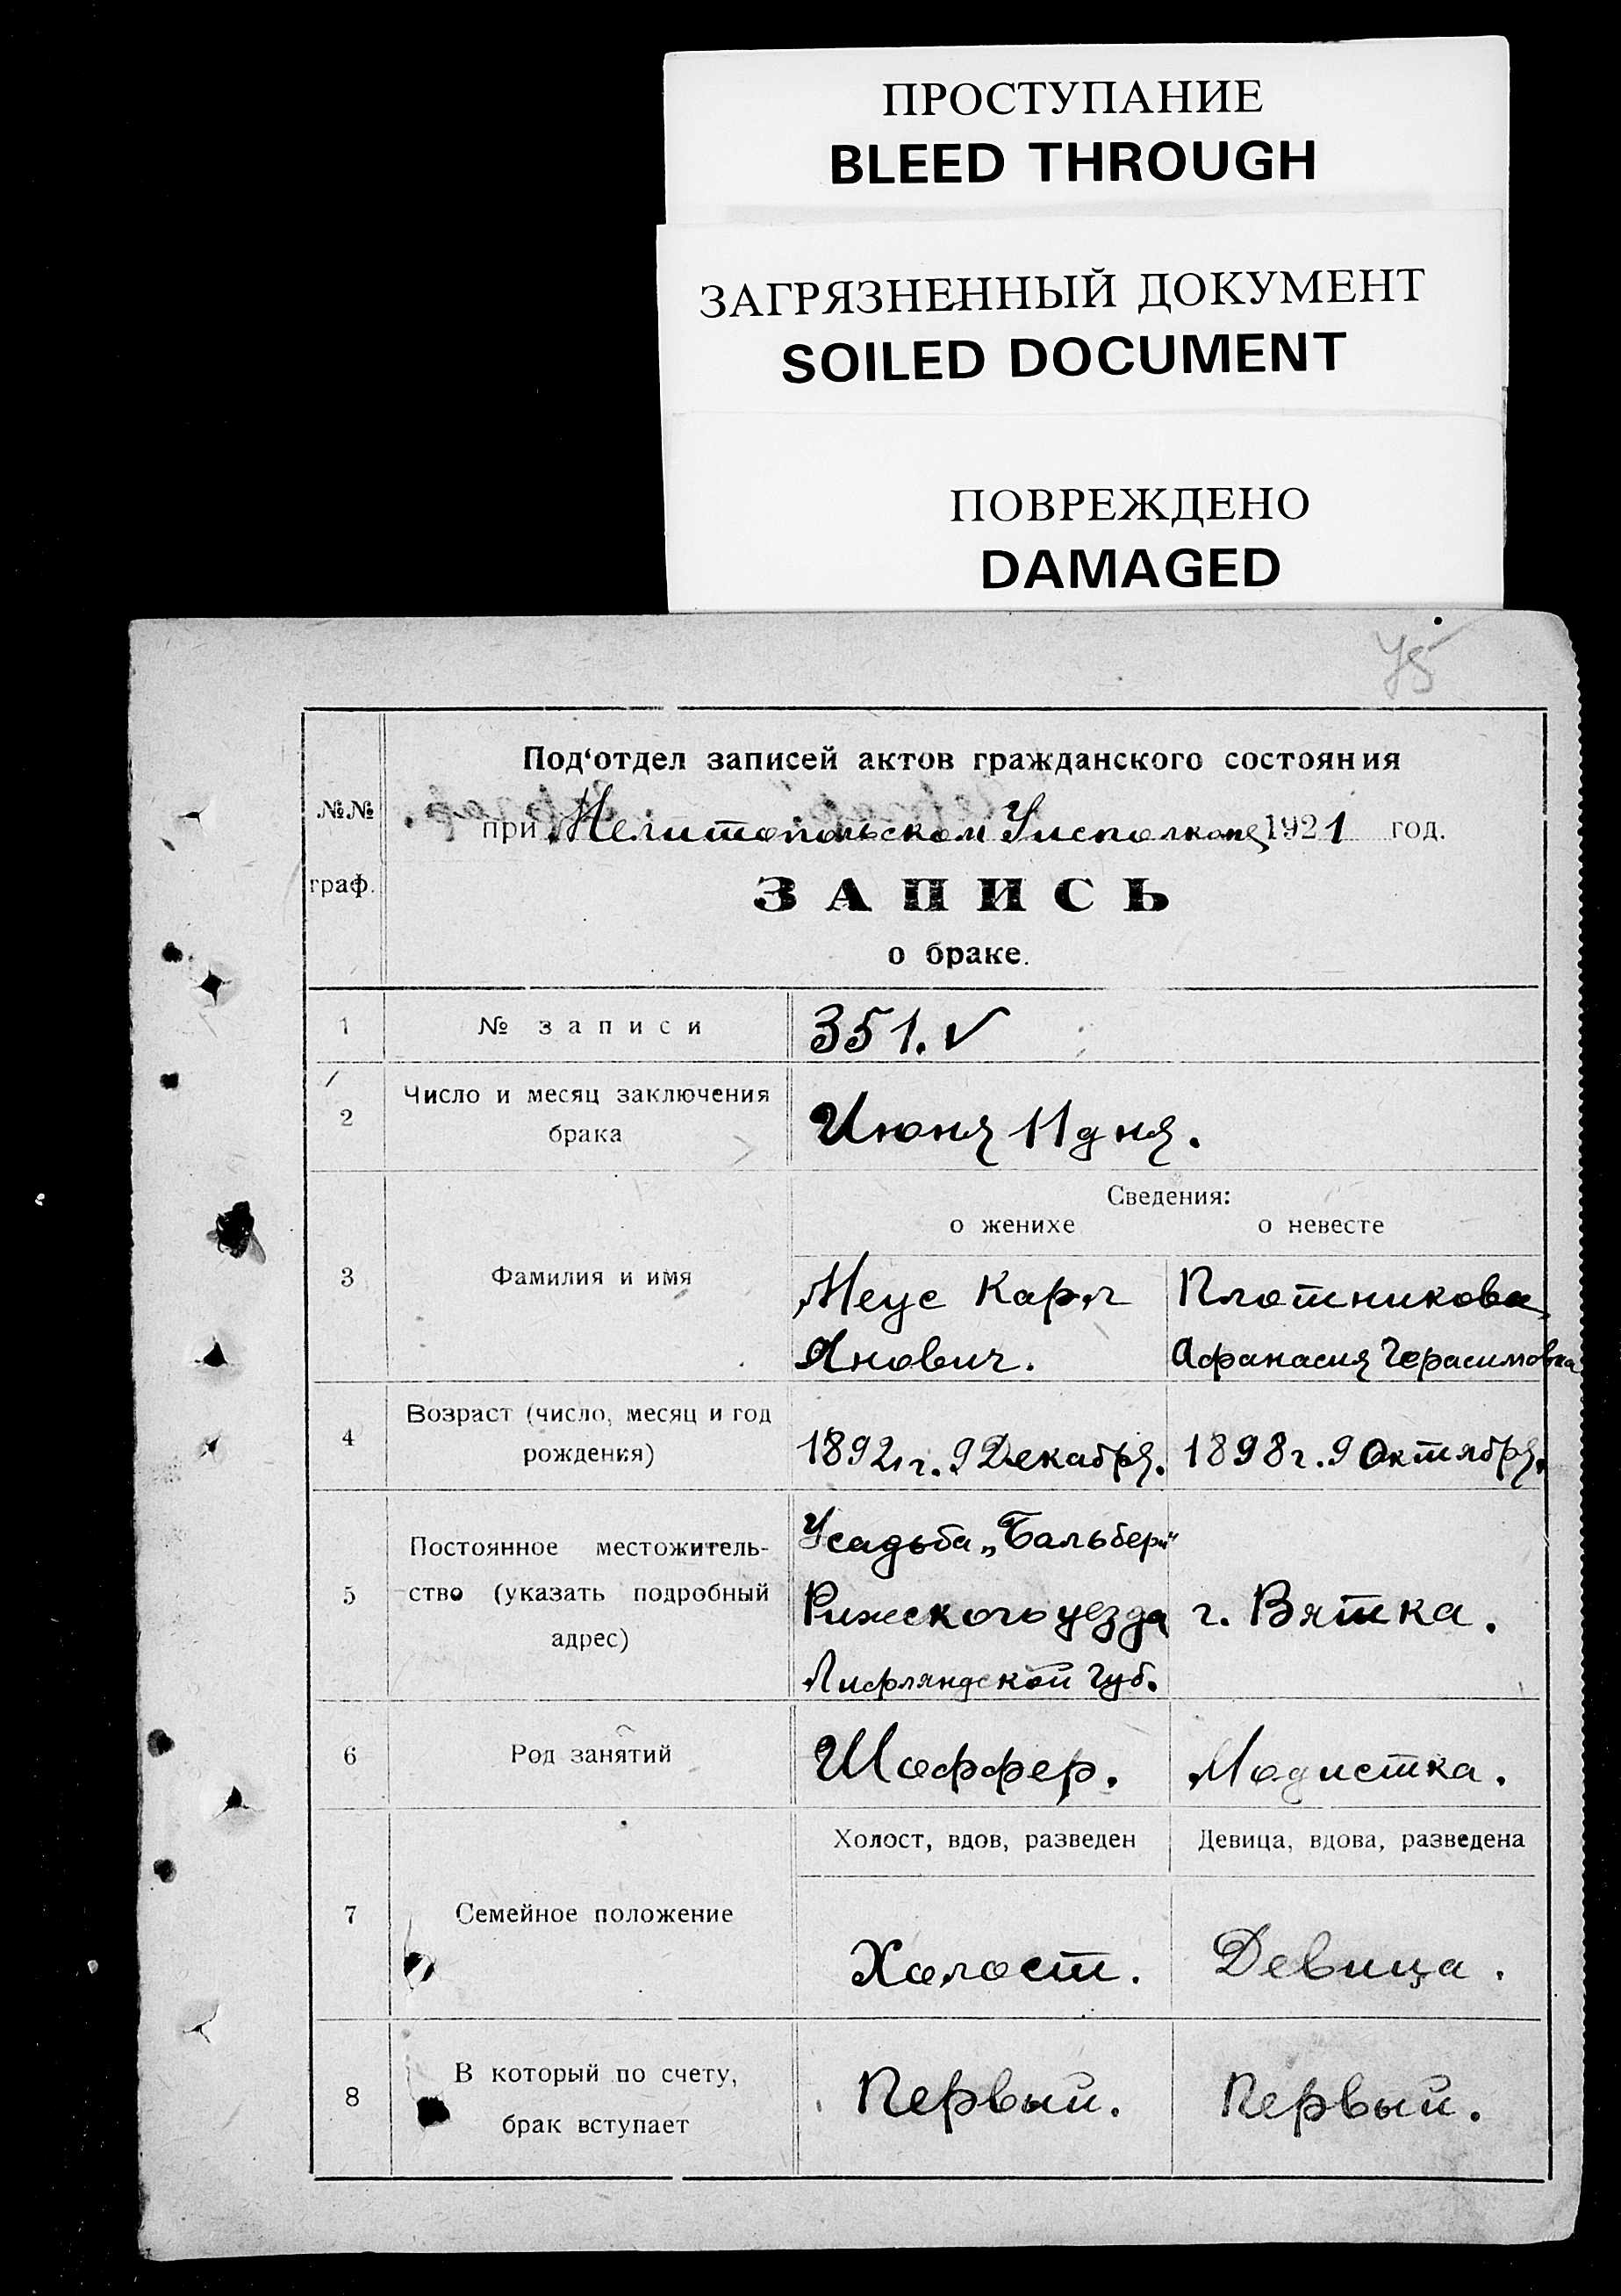 ПРОСТУПАНИЕ
BLEED THROUGH
ЗАГРЯЗНЕННЫЙ ДОКУМЕНТ
SOILED DOCUMENT
ПОВРЕЖДЕНО
DAMAGED
45
№№
граф.
Под‘отдел записей актов гражданского состояния
при Мелитопольском Уисполкоме 1921 год.
ЗАПИСЬ
о браке.
1 № записи 351. ✓
2 Число и месяц заключения
брака
Июня 11 дня.
Сведения:
о женихе о невесте
3 Фамилия и имя
Меус Карл
Янович.
Плотникова
Афанасия Герасимовна
4 Возраст (число, месяц и год
рождения)
1892 г. 9 Декабря. 1898 г. 9 Октября.
5 Постоянное местожитель-
ство (указать подробный
адрес)
Усадьба „Бальбери“
Рижского уезда
Лифляндской Губ.
г. Вятка.
6 Род занятий Шоффер. Модистка.
Холост, вдов, разведен Девица, вдова, разведена
7 Семейное положение
Холост. Девица.
8 В который по счету,
брак вступает
Первый. Первый.